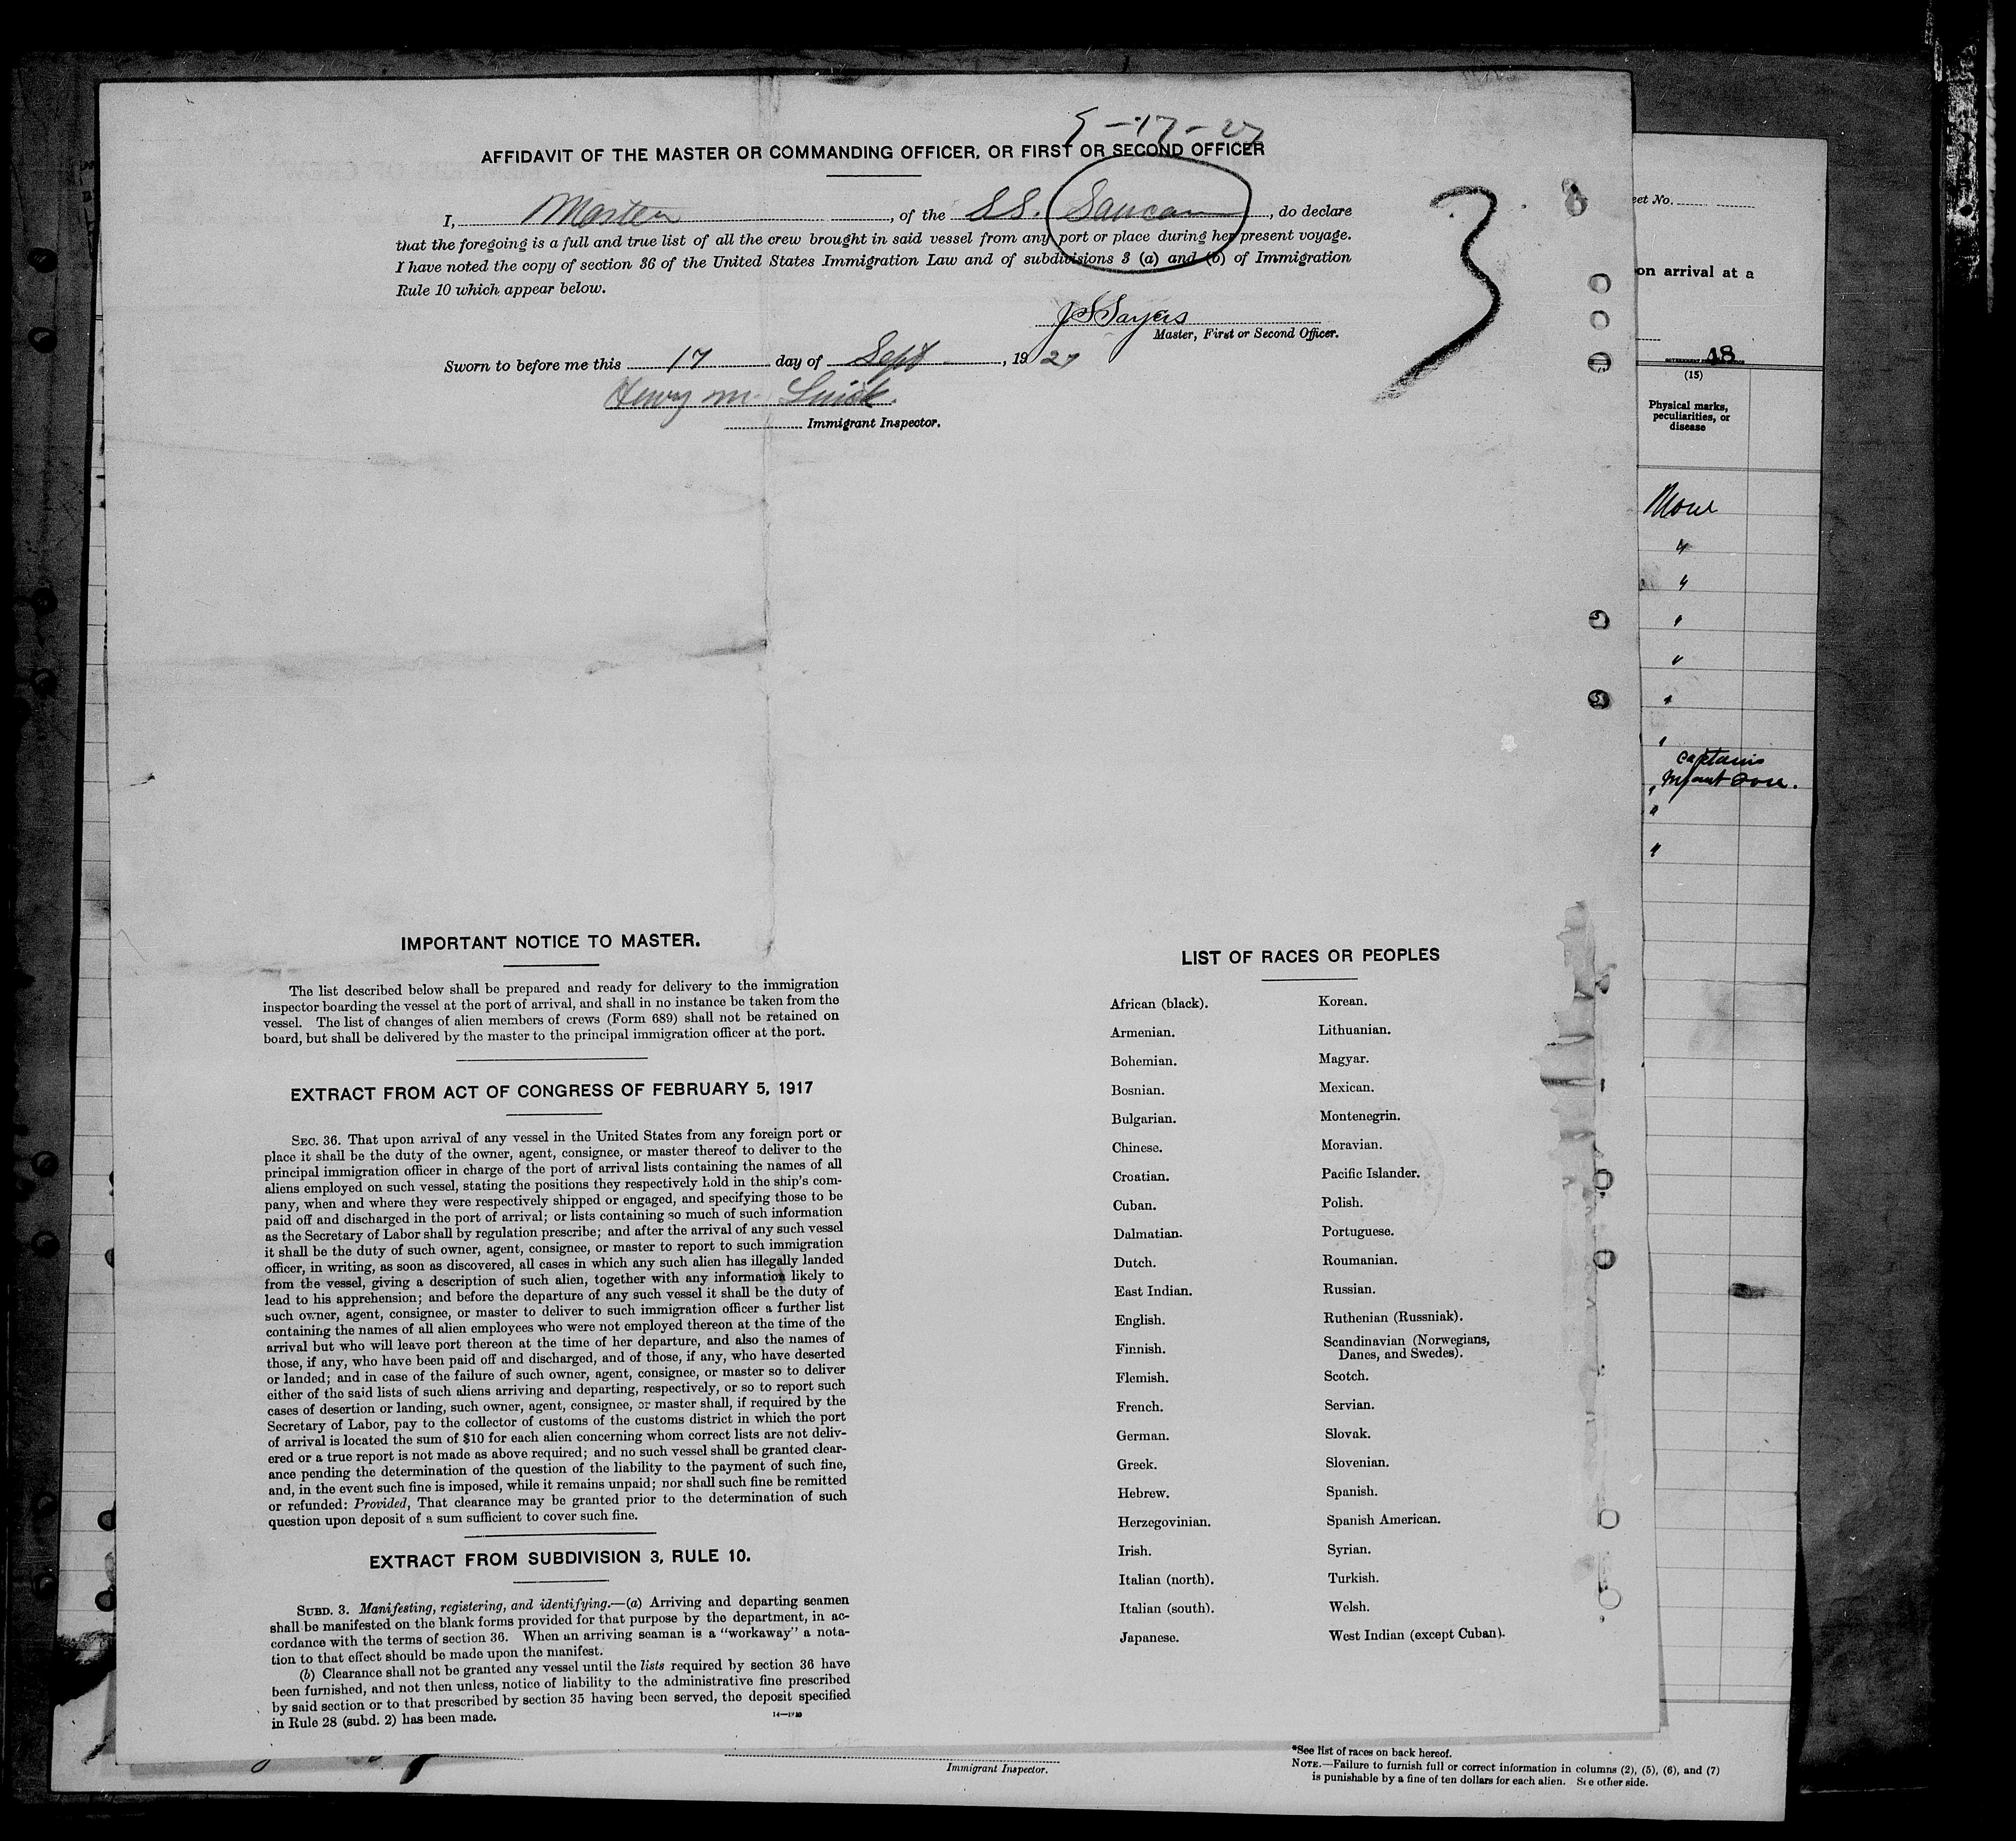 9-17-27
AFFIDAVIT OF THE MASTER OR COMMANDING OFFICER, OR FIRST OR SECOND OFFICER
I, Master, of the SS. Saucan, do declare
that the foregoing is a full and true list of all the crew brought in said vessel from any port or place during her present voyage.
I have noted the copy of section 36 of the United States Immigration Law and of subdivisions 3 (a) and (b) of Immigration
Rule 10 which appear below.
J S Sayers
Master, First or Second Officer.
Sworn to before me this 17 day of Sept, 1927
Henry M.
Immigrant Inspector.
3
IMPORTANT NOTICE TO MASTER.
The list described below shall be prepared and ready for delivery to the immigration
inspector boarding the vessel at the port of arrival, and shall in no instance be taken from the
vessel. The list of changes of alien members of crews (Form 689) shall not be retained on
board, but shall be delivered by the master to the principal immigration officer at the port.
EXTRACT FROM ACT OF CONGRESS OF FEBRUARY 5, 1917
SEC. 36. That upon arrival of any vessel in the United States from any foreign port or
place it shall be the duty of the owner, agent, consignee, or master thereof to deliver to the
principal immigration officer in charge of the port of arrival lists containing the names of all
aliens employed on such vessel, stating the positions they respectively hold in the ship's com-
pany, when and where they were respectively shipped or engaged, and specifying those to be
paid off and discharged in the port of arrival; or lists containing so much of such information
as the Secretary of Labor shall by regulation prescribe; and after the arrival of any such vessel
it shall be the duty of such owner, agent, consignee, or master to report to such immigration
officer, in writing, as soon as discovered, all cases in which any such alien has illegally landed
from the vessel, giving a description of such alien, together with any information likely to
lead to his apprehension; and before the departure of any such vessel it shall be the duty of
such owner, agent, consignee, or master to deliver to such immigration officer a further list
containing the names of all alien employees who were not employed thereon at the time of the
arrival but who will leave port thereon at the time of her departure, and also the names of
those, if any, who have been paid off and discharged, and of those, if any, who have deserted
or landed; and in case of the failure of such owner, agent, consignee, or master so to deliver
either of the said lists of such aliens arriving and departing, respectively, or so to report such
cases of desertion or landing, such owner, agent, consignee, or master shall, if required by the
Secretary of Labor, pay to the collector of customs of the customs district in which the port
of arrival is located the sum of $10 for each alien concerning whom correct lists are not deliv-
ered or a true report is not made as above required; and no such vessel shall be granted clear-
ance pending the determination of the question of the liability to the payment of such fine,
and, in the event such fine is imposed, while it remains unpaid; nor shall such fine be remitted
or refunded: Provided, That clearance may be granted prior to the determination of such
question upon deposit of a sum sufficient to cover such fine.
EXTRACT FROM SUBDIVISION 3, RULE 10.
SUBD. 3. Manifesting, registering, and identifying.—(a) Arriving and departing seamen
shall be manifested on the blank forms provided for that purpose by the department, in ac-
cordance with the terms of section 36. When an arriving seaman is a "workaway" a nota-
tion to that effect should be made upon the manifest.
(b) Clearance shall not be granted any vessel until the lists required by section 36 have
been furnished, and not then unless, notice of liability to the administrative fine prescribed
by said section or to that prescribed by section 35 having been served, the deposit specified
in Rule 28 (subd. 2) has been made.
LIST OF RACES OR PEOPLES
African (black).
Armenian.
Bohemian.
Bosnian.
Bulgarian.
Chinese.
Croatian.
Cuban.
Dalmatian.
Dutch.
East Indian.
English.
Finnish.
Flemish.
French.
German.
Greek.
Hebrew.
Herzegovinian.
Irish.
Italian (north).
Italian (south).
Japanese.
Korean.
Lithuanian.
Magyar.
Mexican.
Montenegrin.
Moravian.
Pacific Islander.
Polish.
Portuguese.
Roumanian.
Russian.
Ruthenian (Russniak).
Scandinavian (Norwegians,
Danes, and Swedes).
Scotch.
Servian.
Slovak.
Slovenian.
Spanish.
Spanish American.
Syrian.
Turkish.
Welsh.
West Indian (except Cuban).
eet No.
on arrival at a
18
(15)
Physical marks,
peculiarities, or
disease
None
"
"
"
"
"
"
captains
"
"
"
Immigrant Inspector.
*See list of races on back hereof.
NOTE.—Failure to furnish full or correct information in columns (2), (5), (6), and (7)
is punishable by a fine of ten dollars for each alien. See other side.